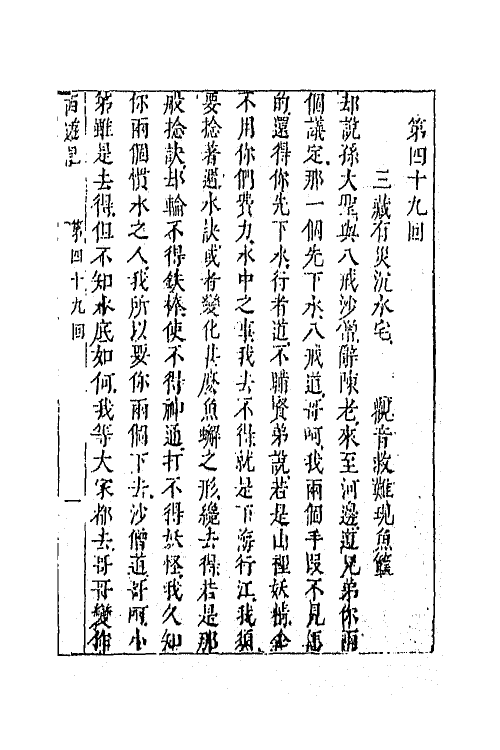 第四十九回
三藏有災沉水宅　觀音救難現魚籃
却說孫大聖與八戒沙僧辭陳老來至河邊道兄弟你兩
個議定那一個先下水八戒道哥呵我兩個手段不見怎
的還得你先下水行者道不瞞賢弟說若是山裡妖精全
不用你們費力水中之事我去不得就是下海行江我須
要捻著避水訣或者變化甚麽魚蠏之形纔去得若是那
般捻訣却輪不得鉄棒使不得神通打不得妖怪我久知
你兩個慣水之人我所以要你兩個下去沙僧道哥呵小
弟雖是去得但不知水底如何我等大家都去哥哥變作
西遊記　第四十九回　一